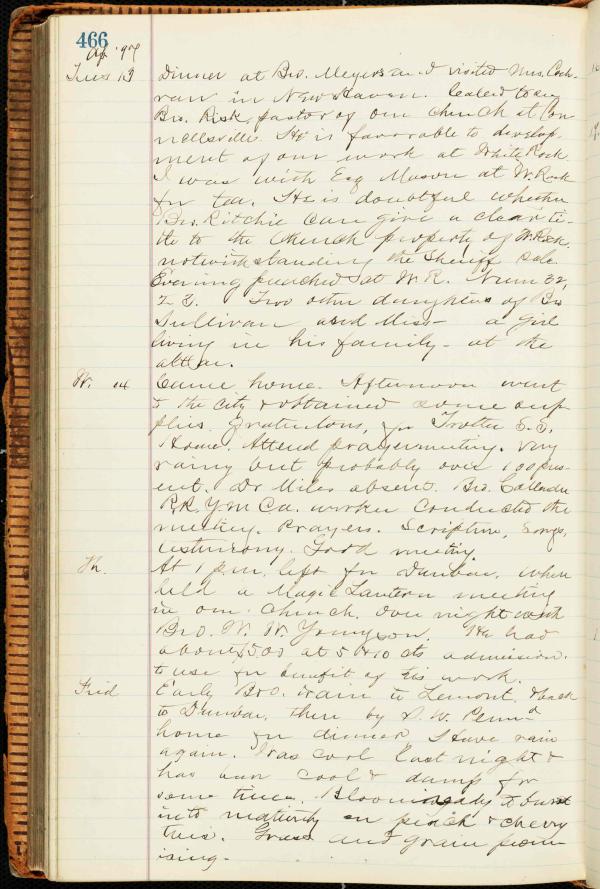 466
Ap. '97
Tues 13 Dinner at Bro. Meyers and I visited Mrs. Coch-
ran in New Haven. Called to see
Bro. Risk, pastor of our church at Con
nellsville. He is favorable to develop-
ment of our work at White Rock.
I was with Esq Mason at W. Rock
for tea. He is doubtful whether
Bro. Ritchie can give a clear ti-
tle to the Church property of W. Rock,
notwithstanding the Sheriff sale.
Evening preached at W. R. Num 32,
23. Two other daughters of Bro
Sullivan and Miss — a girl
living in his family - at the
altar.
W. 14 Came home. Afternoon went
to the City & obtained some sup
plies, gratuitous, for Trotter S. S.
Home. Attend prayermeeting. Very
rainy but probably over 100 pres-
ent. Dr Miles absent. Bro.
RR. Y M C a. worker conducted the
meeting. Prayers. Scripture, Songs,
testimony. Good meeting.
Th. At 1 p.m. left for Dunbar. Where
held a Magic Lantern meeting
in our Church. Over night with
Bro. W. W. Youngson. He had
about $5.00 at 5 & 10 cts admission.
to use for benefit of his work.
Frid Early B&O. train to Lemont & back
to Dunbar, then by S. W. Penn'a
home for dinner. Have rain
again. Was cool last night &
has been cool & damp for
some time. Bloom ready to burst
into maturity on peach & cherry
trees. Grass and grain prom
ising-